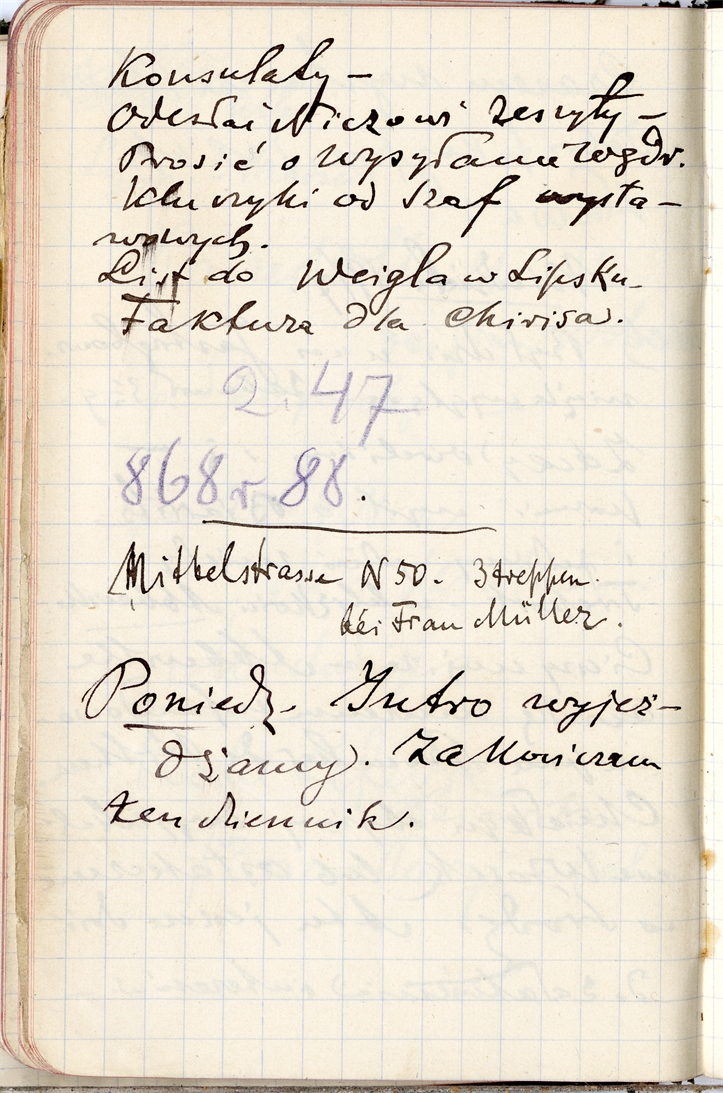 Konsulaty –
Odesłać Niczowi zeszyty –
Prosić o wysyłanie
Kluczyki od szaf wysta-
wowych.
List do Weigla w Lipsku
Faktura dla Chirisa.
2.47
868 r. 88.
Mittelstrasse N 50. 3 treppen.
bei Frau Müller.
Poniedz. Jutro wyjeż-
dżamy. Zakończam
ten dziennik.